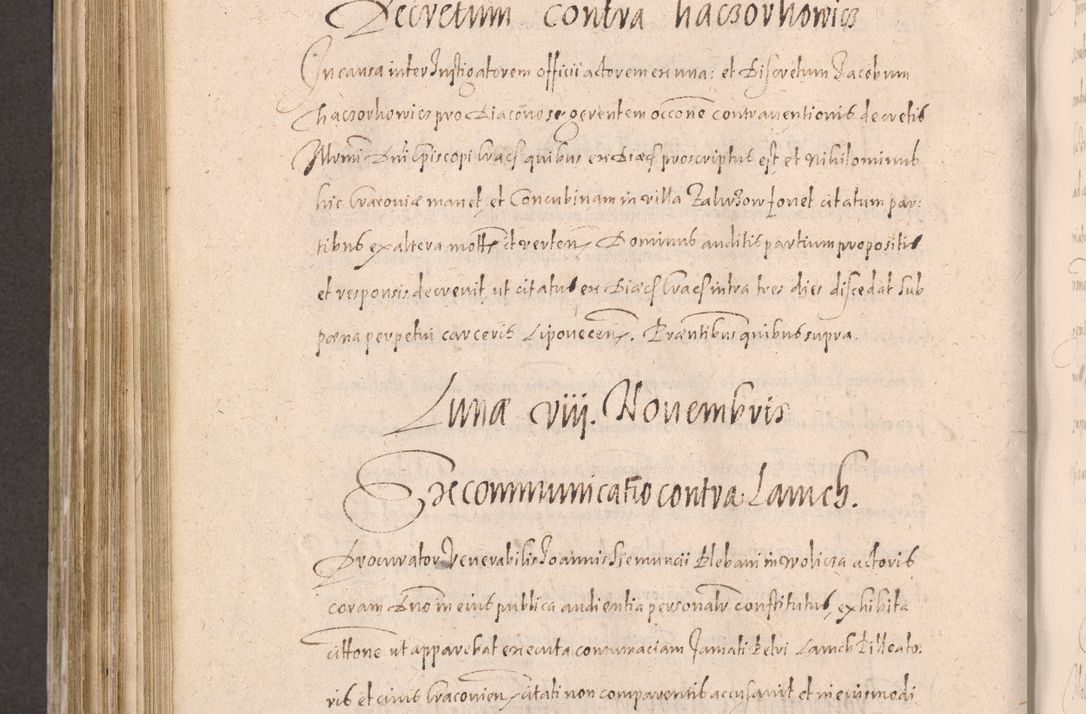 Decretum contra haczorhowicz
In causa inter Instigatorem officii actorem ex una: et Discretum Jacobum
haczorhowicz pro Diacono se gerentem occone contraventionis decretis
Mrmi Dni Episcopi Cracs quibus ex Diaecs proscriptus est et nihilominus
hic Cracoviae manet, et Concubinam in villa fovet citatum par:
tibus ex altera Dominus auditis partium propositis
et responsis decrevit, ut citatus ex Diaecs Cracs intra tres dies discedat sub
paena perpetui carceris Lipovecen. Praentibus quibus supra.
Lunae viii. Novembris
Excommunicatio contra Lamch.
Procurator Venerabilis Joannis Plebani in Wolicza actoris
coram Dno in eius publica audientia personalr constitutus, exhibita
cittone ut apparebat executa contumaciam famati Petri Lamch Pilleato:
ris et civis Cracovien citati non comparentis accusavit et in eiusmodi